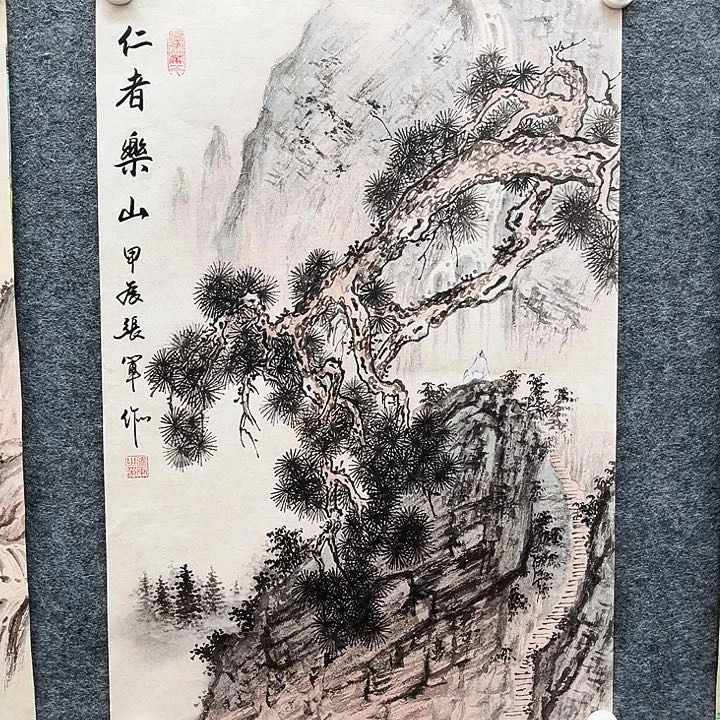 仁者樂山
甲辰張軍作